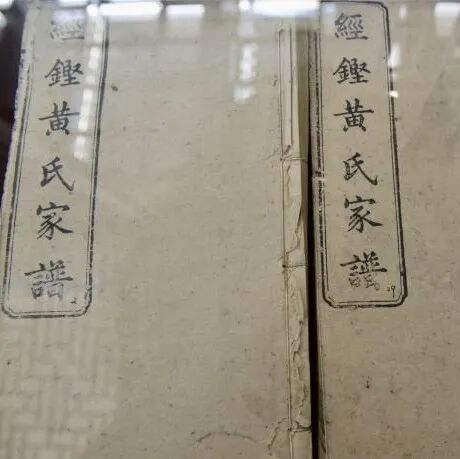 經鏗黃氏家譜
經鏗黃氏家譜